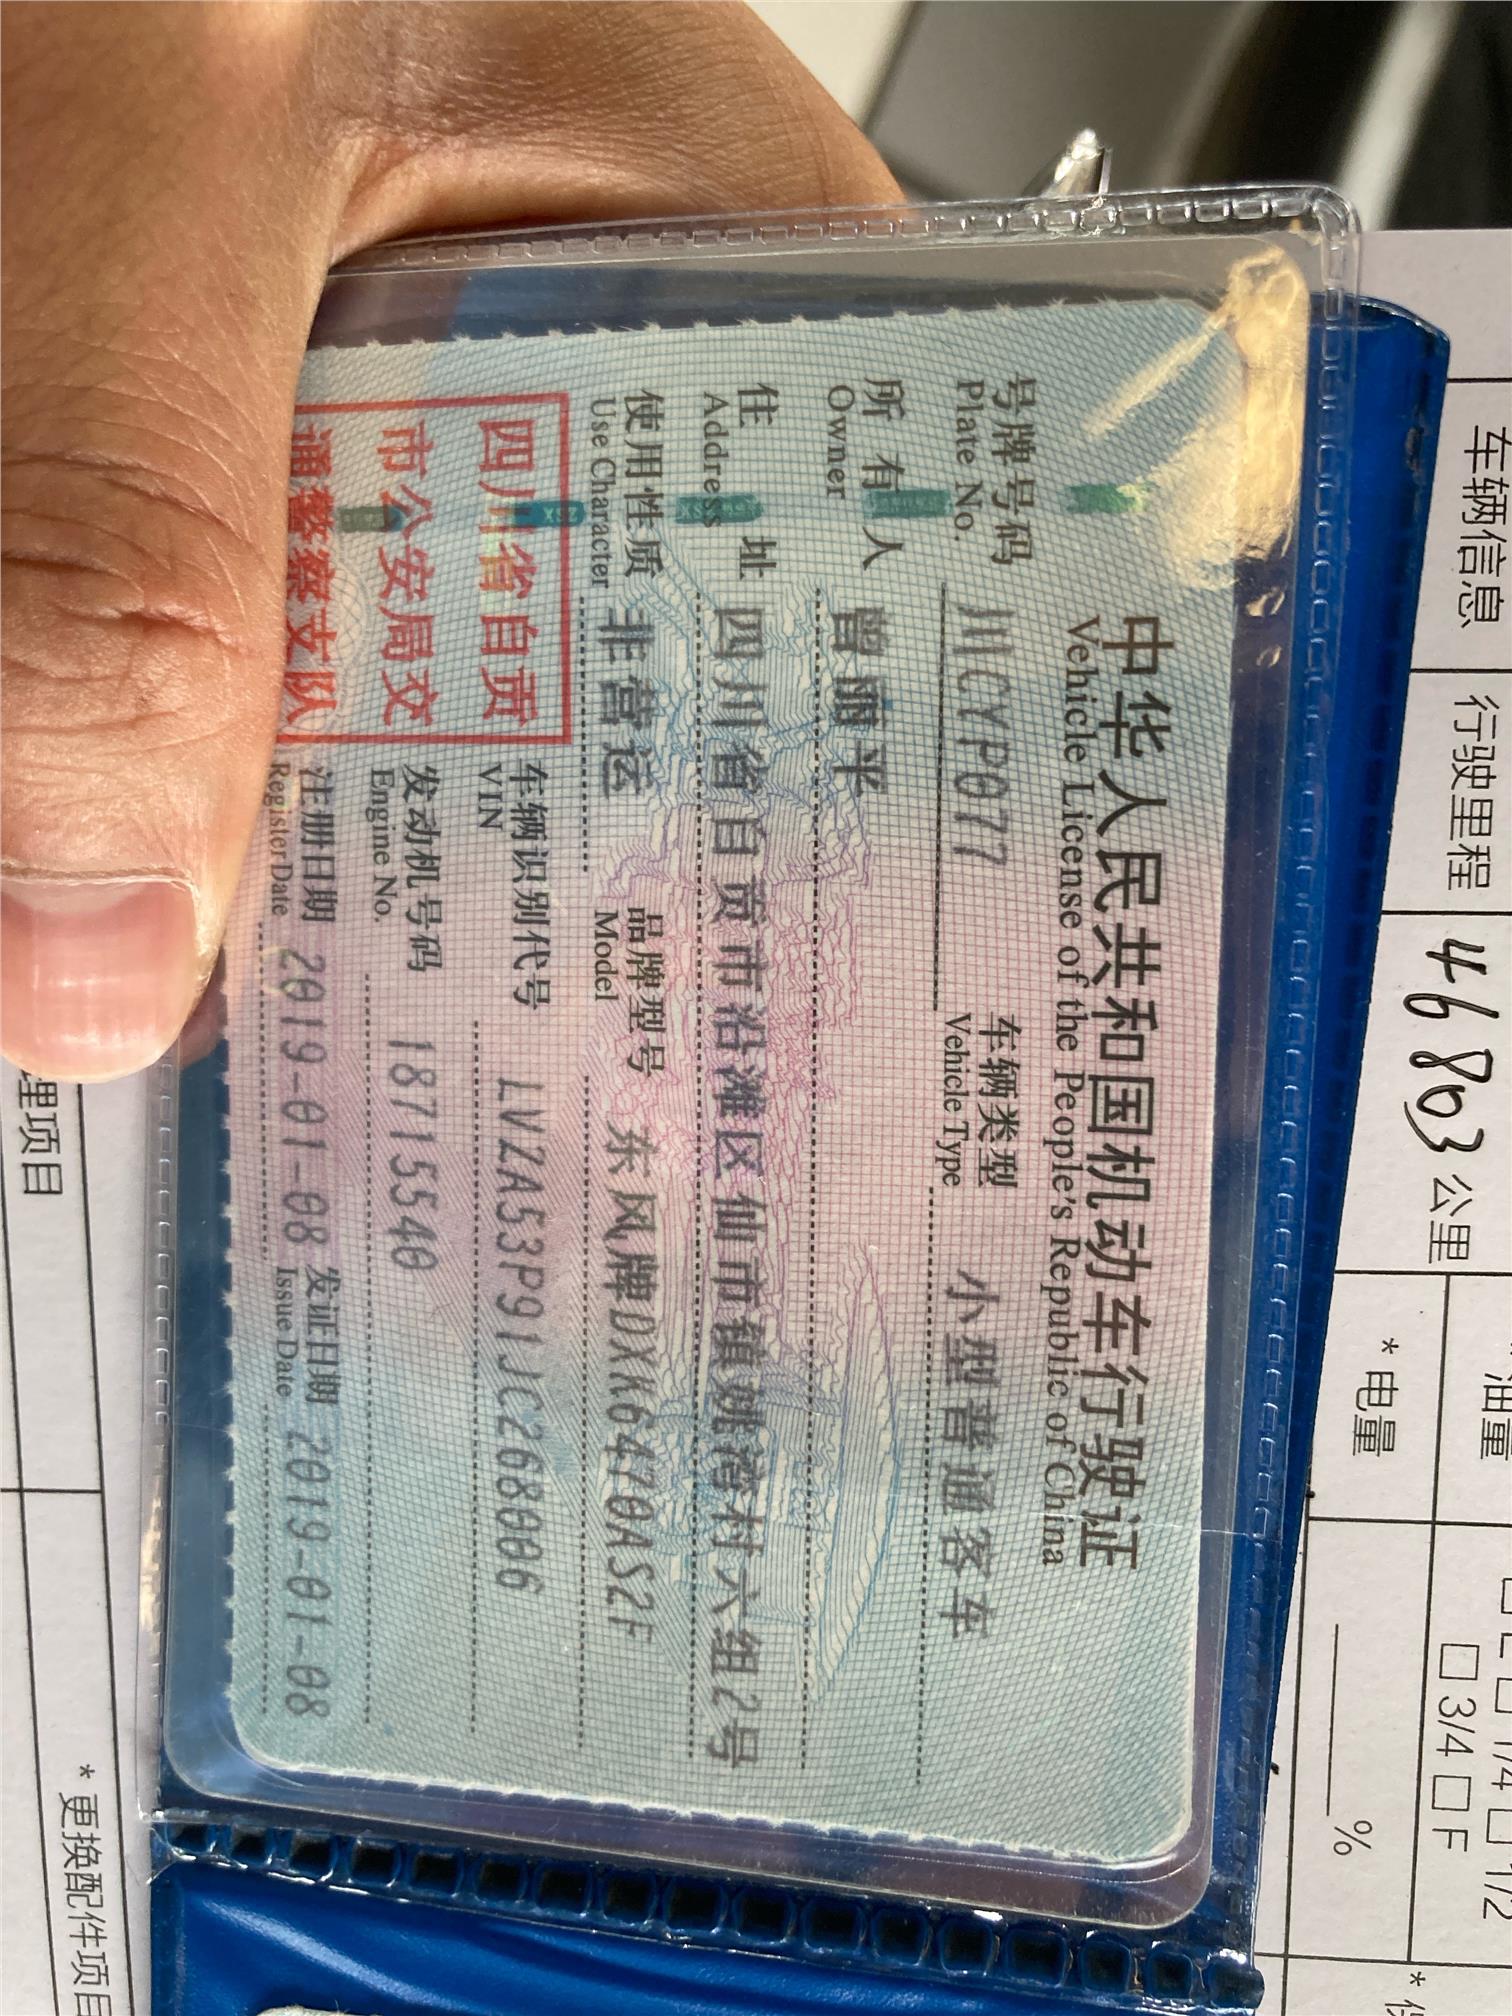 中华人民共和国机动车行驶证
Vehicle License of the People's Republic of China
号牌号码 川CYP077 车辆类型 小型普通客车
Plate No. Vehicle Type
所有人 曾丽平
Owner
住址 四川省自贡市沿滩区仙市镇姚湾村六组2号
Address
使用性质 非营运 品牌型号 东风牌DXK6470AS2F
Use Character Model
四川省自贡
市公安局交
通警察支队
车辆识别代号 LVZA53P91JC268006
VIN
发动机号码 18715540
Engine No.
注册日期 2019-01-08 发证日期 2019-01-08
Register Date Issue Date
车辆信息 行驶里程 46803公里
油量 1/4 1/2
3/4 F
*电量 %
理项目
*更换配件项目